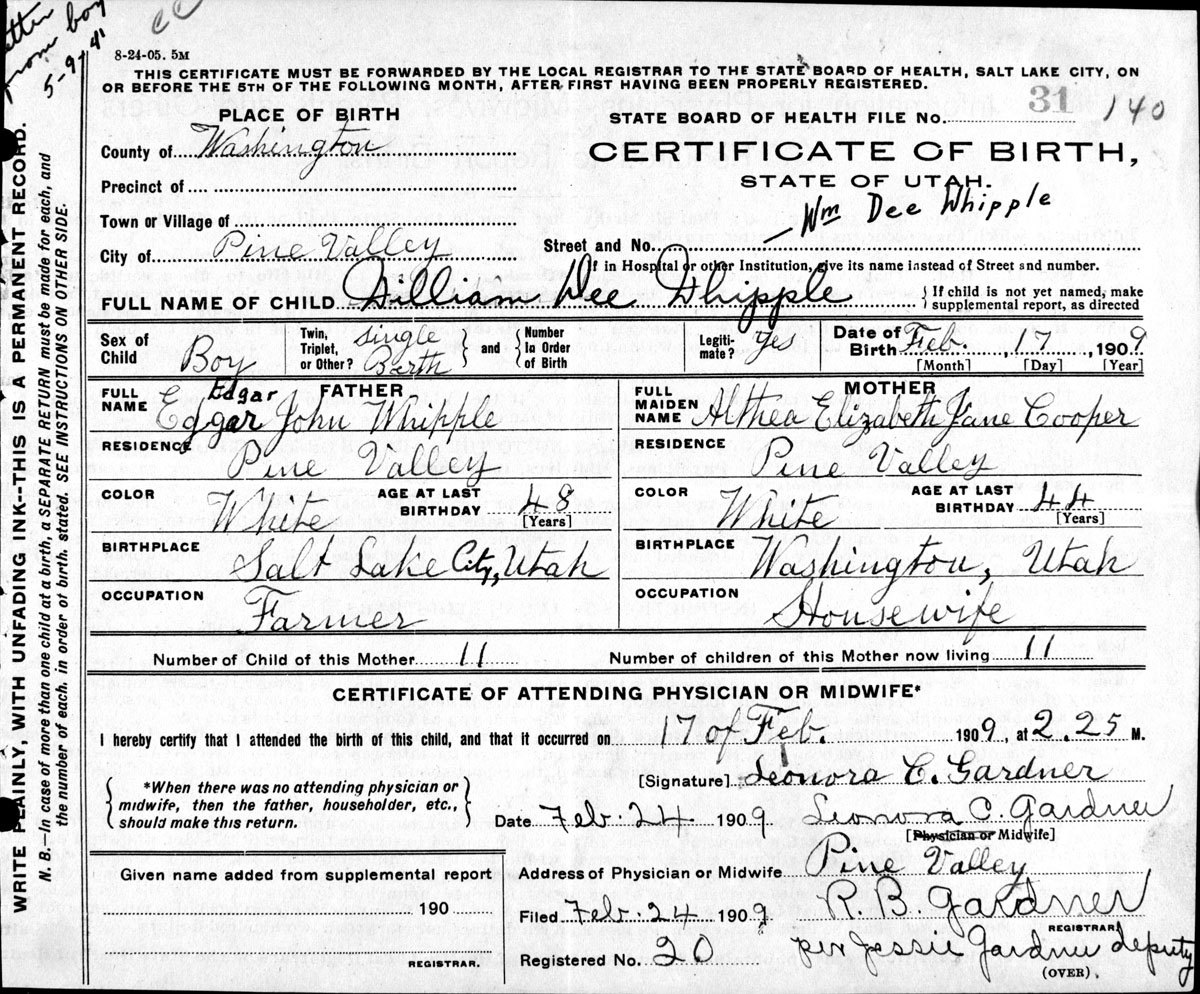 letter
from boy
5-9-41
CC
8-24-05. 5M
THIS CERTIFICATE MUST BE FORWARDED BY THE LOCAL REGISTRAR TO THE STATE BOARD OF HEALTH, SALT LAKE CITY, ON
OR BEFORE THE 5TH OF THE FOLLOWING MONTH, AFTER FIRST HAVING BEEN PROPERLY REGISTERED.
WRITE PLAINLY, WITH UNFADING INK--THIS IS A PERMANENT RECORD.
N. B.—In case of more than one child at a birth, a SEPARATE RETURN must be made for each, and
the number of each. in order of birth. stated. SEE INSTRUCTIONS ON OTHER SIDE.
PLACE OF BIRTH
STATE BOARD OF HEALTH FILE No. 31 140
County of Washington
CERTIFICATE OF BIRTH,
Precinct of
STATE OF UTAH.
Town or Village of
Wm Dee Whipple
City of Pine Valley
Street and No.
If in Hospital or other Institution, give its name instead of Street and number.
FULL NAME OF CHILD William Dee Whipple
If child is not yet named, make
supplemental report, as directed
Sex of Child Boy
Twin, Triplet, or Other? Single Berth
and
Number In Order of Birth
Legiti-mate? Yes
Date of Birth Feb. , 17 , 1909
[Month] [Day] [Year]
FATHER
FULL NAME Edgar Edgar John Whipple
RESIDENCE Pine Valley
COLOR White
AGE AT LAST BIRTHDAY 48
[Years]
BIRTHPLACE Salt Lake City, Utah
OCCUPATION Farmer
MOTHER
FULL MAIDEN NAME Althea Elizabeth Jane Cooper
RESIDENCE Pine Valley
COLOR White
AGE AT LAST BIRTHDAY 44
[Years]
BIRTHPLACE Washington, Utah
OCCUPATION Housewife
Number of Child of this Mother 11
Number of children of this Mother now living 11
CERTIFICATE OF ATTENDING PHYSICIAN OR MIDWIFE*
I hereby certify that I attended the birth of this child, and that it occurred on 17 of Feb. 1909, at 2.25 M.
[Signature] Leonora C. Gardner
*When there was no attending physician or
midwife, then the father, householder, etc.,
should make this return.
Date Feb. 24 1909 Leonora C. Gardner
[Physician or Midwife]
Address of Physician or Midwife Pine Valley
Given name added from supplemental report
190
REGISTRAR.
Filed Feb. 24 1909 R. B. Gardner
REGISTRAR.
Registered No. 20 per Jessie Gardner deputy
(OVER)